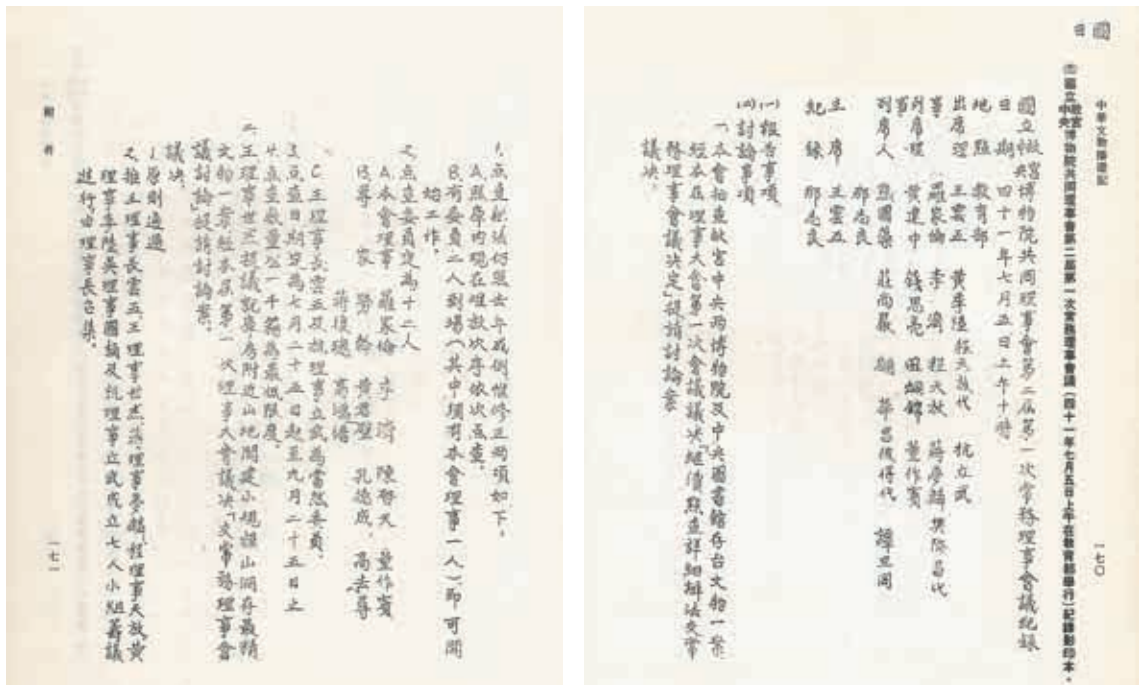 國
日
中華文物播遷記
一七〇
㈦國立故宮中央博物院共同理事會第二屆第一次常務理事會議(四十一年七月五日上午在教育部舉行)紀錄影印本。
國立故宮中央博物院共同理事會第二屆第一次常務理事會議紀錄
日　期　四十一年七月五日上午十時
地　點　教育部
出席理事　王雲五　黃季陸程天放代　杭立武
羅家倫　李濟　程天放　蔣夢麟樊際昌代
列席理事　黃建中　錢思亮　田烱錦　董作賓
列席人　熊國藻　莊尚嚴　顧華昌後得代　譚旦冏
那志良
主　席　王雲五
紀　錄　那志良
(一)報告事項
(二)討論事項
一、本會抽查故宮中央兩博物院及中央圖書館存台文物一案
經本屆理事大會第一次會議議決「繼續點查詳細辦法交常
務理事會議決定」提請討論案
議決、
1.點查辦法仍照去年成例惟修正兩項如下、
A.照庫內現在堆放次序依次点查、
B.有委員二人到場(其中須有本會理事一人)即可開
始工作、
2.点查委員定為十二人
A.本會理事　羅家倫　李濟　陳啓天　董作賓
蔣復璁
B.專　家　勞榦　黃君璧　孔德成、高去尋
C.王理事長雲五及杭理事立武為當然委員、
3.点查日期定為七月二十五日起至九月二十五日止
4.点查數量以一千箱為最低限度、
二、王理事世杰提議就庫房附近山地開建小規模山洞存最精
文物一案經本屆第一次理事大會議決「交常務理事會
議討論」提請討論案、
議決、
1.原則通過
2.推王理事長雲五、王理事世杰、蔣理事夢麟、程理事天放、黃
理事季陸、吳理事國楨及杭理事立武成立七人小組籌議
進行由理事長召集、
附　件
一七一